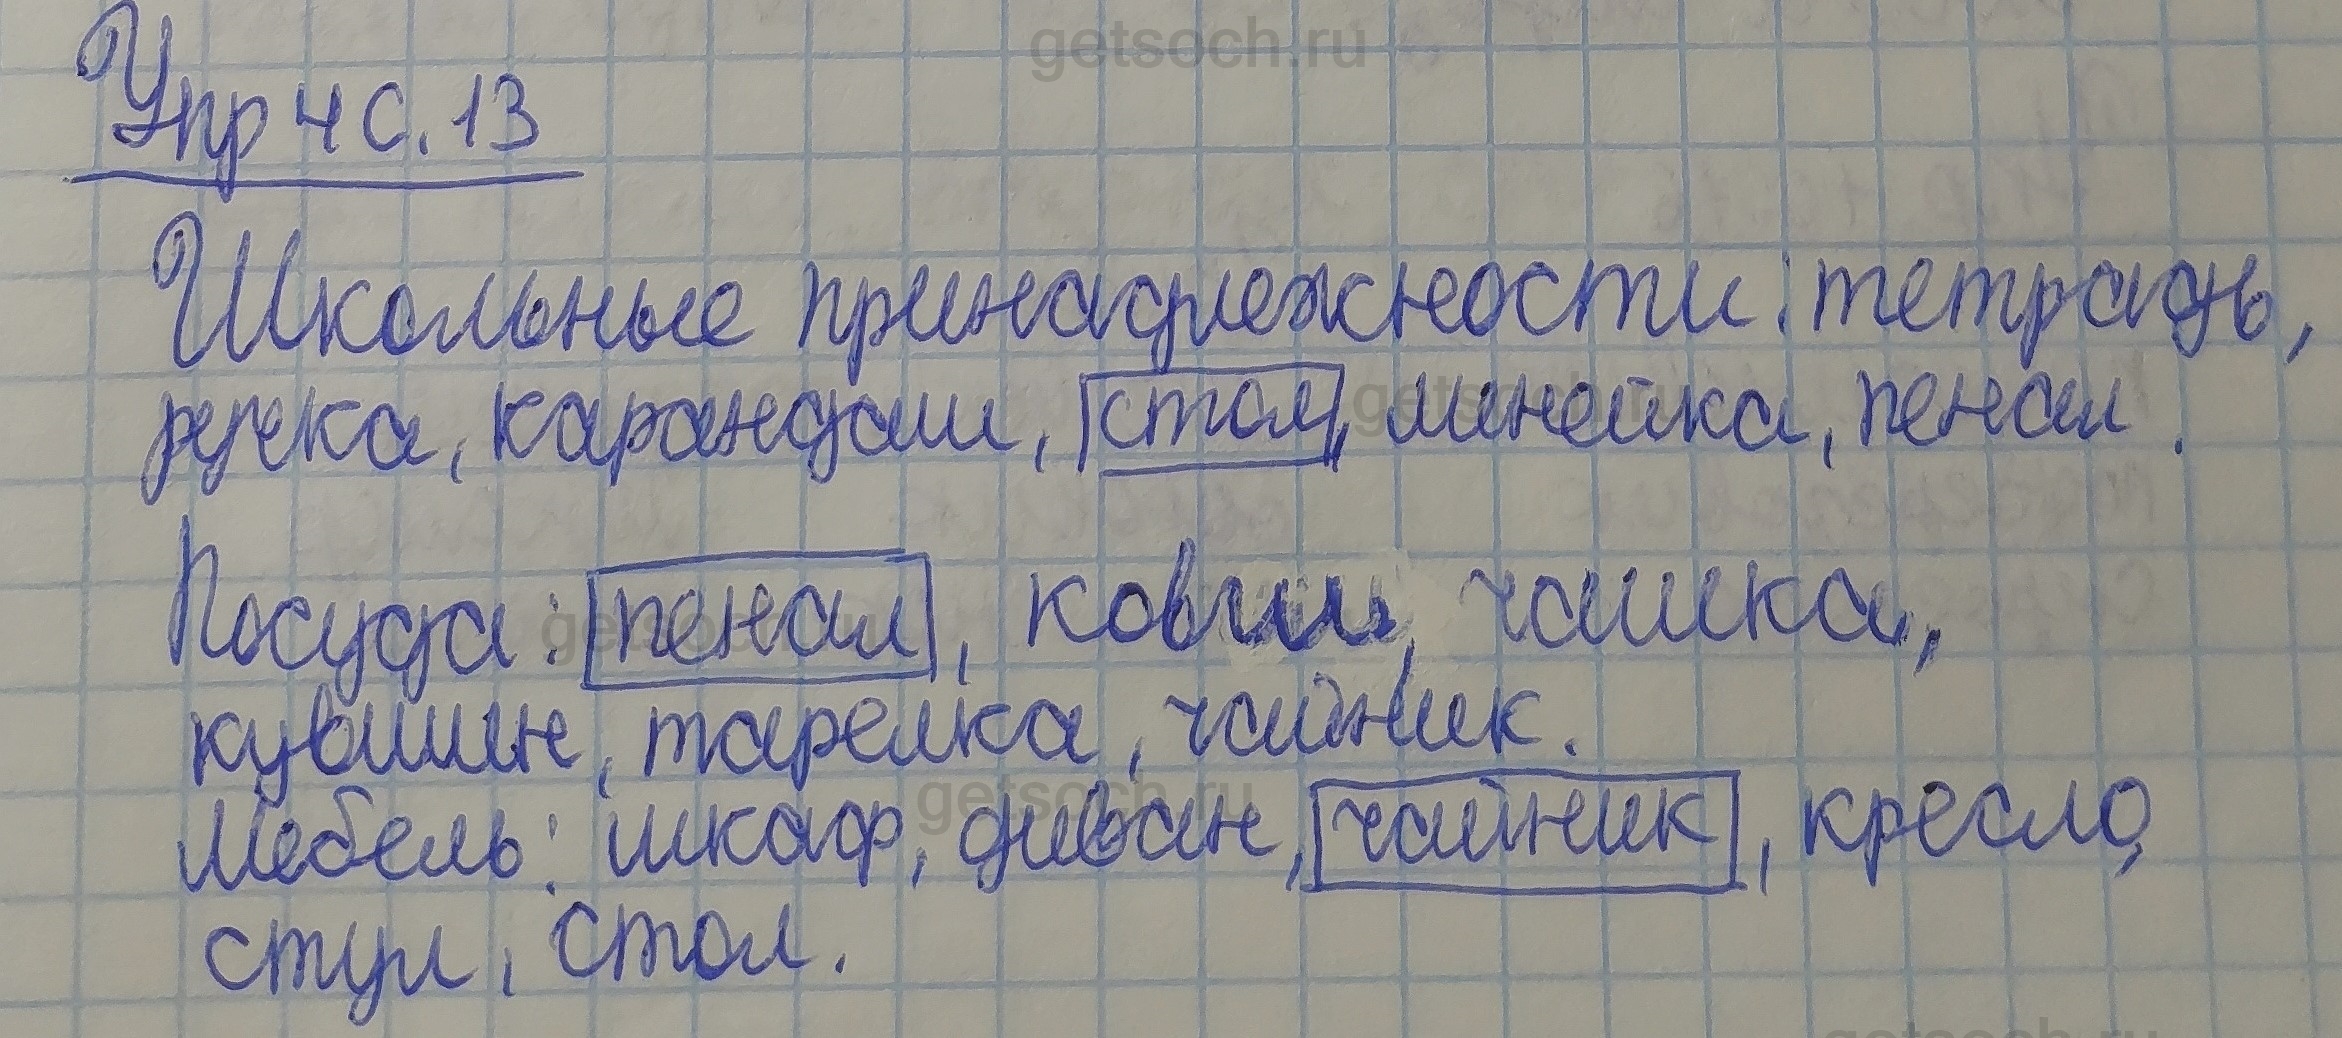 getsoch.ru
Упр 4 с. 13
Школьные принадлежности: тетрадь,
ручка, карандаш, стол, линейка, пенал.
getsoch.ru
Посуда: пенал, ковш, чашка,
getsoch.ru
кувшин, тарелка, чайник.
getsoch.ru
Мебель: шкаф, диван, чайник, кресло,
стул, стол.
getsoch.ru